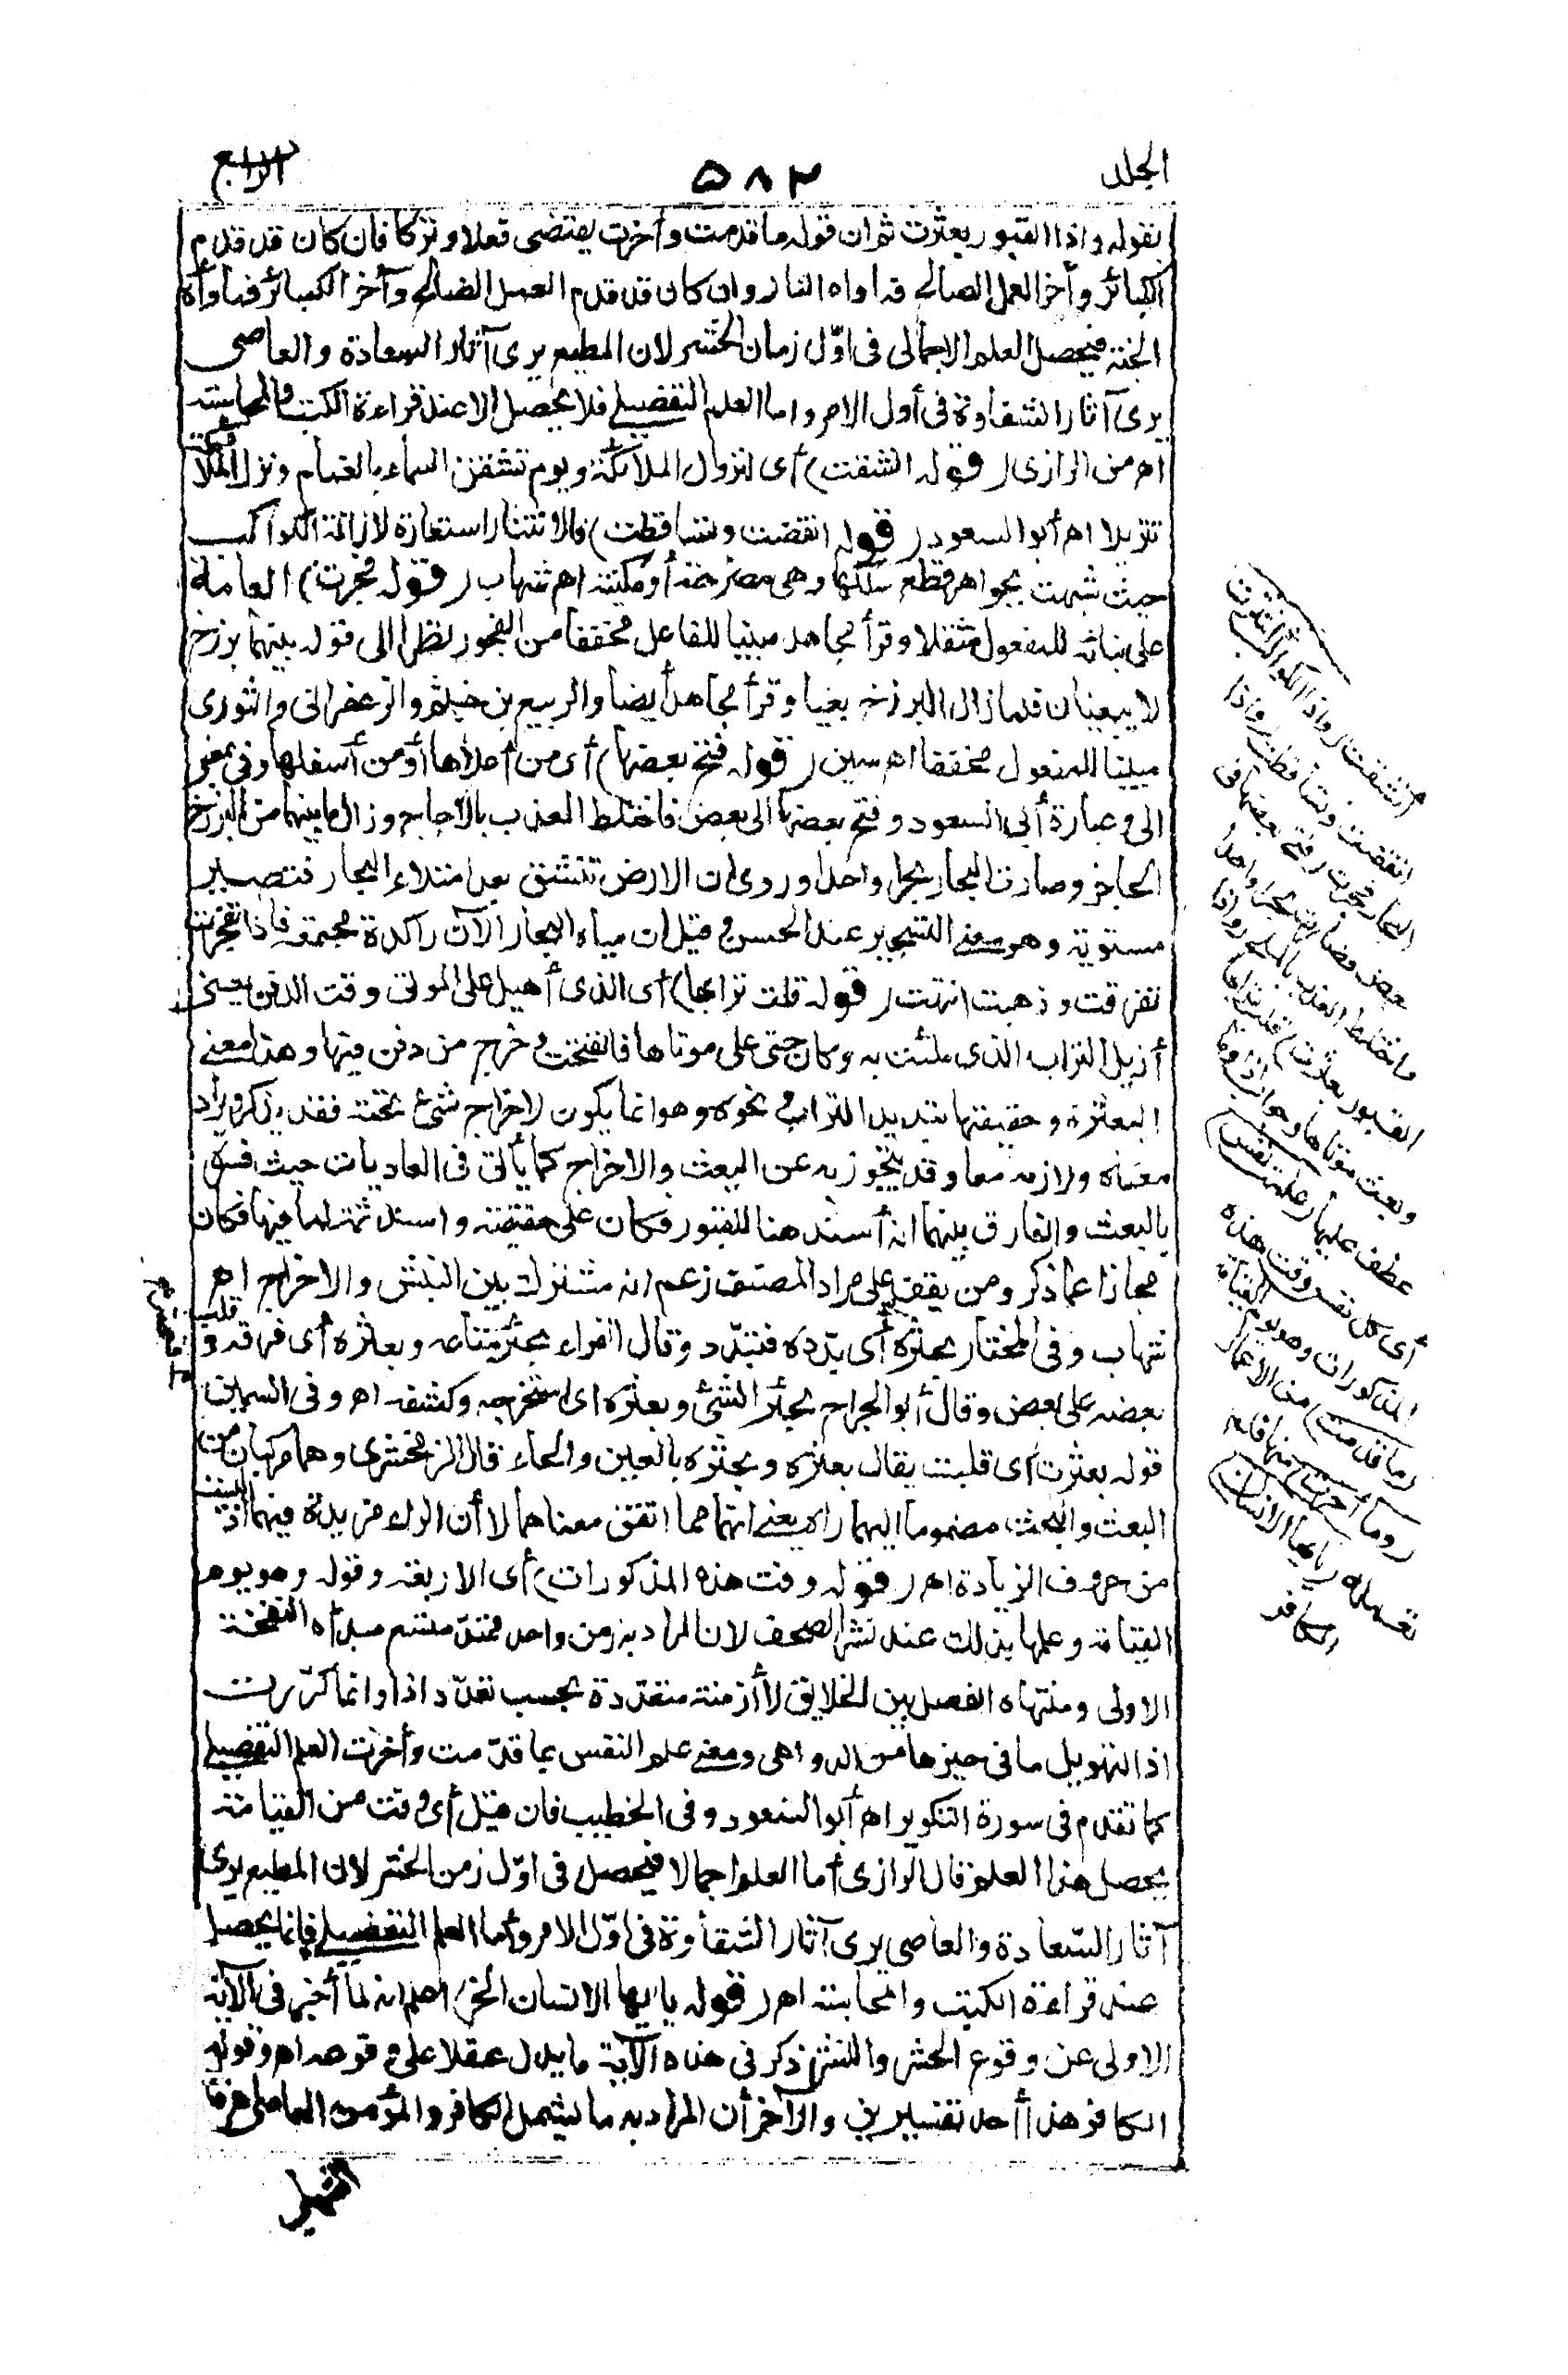 الجلد
٥٨٢
الرابع
بقوله واذا القبور بعثرت ثم ان قوله ما قدمت وأخرت يقتضى فعلا وتركا فان كان قد قدم
الكبائر وأخر العمل الصالح فمأواه النار وان كان قد قدم العمل الصالح وأخر الكبائر فمأواه
الجنة فيحصل العلم الاجمالى فى اوّل زمان الحشر لان المطيع يرى آثار السعادة والعاصى
يرى آثار الشقاوة فى أول الامر واما العلم التفصيلى فلا يحصل الا عند قراءة الكتب والمحاسبة
اه من الرازى (قوله انشقت) أى لنزول الملائكة ويوم تشقق السماء بالغمام ونزل الملائكة
تنزيلا اه أبو السعود (قوله انقضت وتساقطت) فالانتثار استعارة لازالة الكواكب
حيث شبهت بجواهر قطع سلكها وهى مصرحة أو مكنية اه شهاب (قوله فجرت) العامة
على بنائه للمفعول مثقلا وقرأ مجاهد مبنيا للفاعل مخففا من الفجور نظرا الى قوله بينهما برزخ
لا يبغيان فلما زال البرزخ بغيا وقرأ مجاهد أيضا والربيع بن خيثم والزعفرانى والثورى
مبنيا للمفعول مخففا اه سمين (قوله فتح بعضها) أى من أعلاها أو من أسفلها وفى بمعنى
الى وعبارة أبى السعود وفتح بعضها الى بعض فاختلط العذب بالاجاج وزال ما بينهما من البرزخ
الحاجز وصارت البحار بحرا واحدا وروى ان الارض تنشق بعد امتلاء البحار فتصير
مستوية وهو معنى التسجير عند الحسن وقيل ان مياه البحار الآن راكدة مجتمعة فاذا تفجرت
تفرقت وذهبت انتهت (قوله قلب ترابها) أى الذى أهيل على الموتى وقت الدفن يعنى
أزيل التراب الذى ملئت به وكان حثى على موتاها فانفتحت وخرج من دفن فيها وهذا معنى
البعثرة وحقيقتها تبديد التراب ونحوه وهو انما يكون لاخراج شئ تحته فقد يذكر ويراد
معناه ولازمه معا وقد يتجوز به عن البعث والاخراج كما يأتى فى العاديات حيث فسره
بالبعث والفارق بينهما انه أسند هنا للقبور فكان على حقيقته واسند ثمة لما فيها فكان
مجازا عما ذكر ومن يقف على مراد المصنف زعم انه مشترك بين النبش والاخراج اه
شهاب وفى المختار بعثره أى بدّده فتبدّد وقال الفراء بعثر متاعه وبعثره أى فرقه وقلب
بعضه على بعض وقال أبو الجراح بحثر الشئ وبعثره اى استخرجه وكشفه اه وفى السمين
قوله بعثرت أى قلبت يقال بعثره وبحثره بالعين والحاء قال الزمخشرى وهما مركبان من
البعث والبحث مضموما اليهما راء يعنى انهما مما اتفق معناهما لا أن الراء مزيدة فيهما اذ ليست
من حروف الزيادة اه (قوله وقت هذه المذكورات) أى الاربعة وقوله وهو يوم
القيامة وعلمها بذلك عند نشر الصحف لان المراد به زمن واحد ممتدّ متسع مبدأه النفخة
الاولى ومنتهاه الفصل بين الخلايق لا أزمنة متعددة بحسب تعدّد اذا وانما كرّرت
اذا لتهويل ما فى حيزها من الدواهى ومعنى علم النفس بما قدّمت وأخرت العلم التفصيلى
كما تقدم فى سورة التكوير اه أبو السعود وفى الخطيب فان قيل أى وقت من القيامة
يحصل هذا العلم قال الرازى أما العلم اجمالا فيحصل فى اوّل زمن الحشر لان المطيع يرى
آثار السّعادة والعاصى يرى آثار الشقاوة فى اوّل الامر وأما العلم التفصيلى فانما يحصل
عند قراءة الكتب والمحاسبة اه (قوله يا أيها الانسان الخ) اعلم انه لما أخبر فى الآية
الاولى عن وقوع الحشر والنشر ذكر فى هذه الآية ما يدل عقلا على وقوعه اه وقوله
الكافر هذا أحد تفسيرين والآخر أن المراد به ما يشمل الكافر والمؤمن العاصى
انشقت (واذا الكواكب انتثرت)
انقضت وتساقطت (واذا
البحار فجرت) فتح بعضها فى
بعض فصارت بحرا واحدا
واختلط العذب بالملح (واذا
القبور بعثرت) قلب ترابها
وبعث موتاها وجواب اذا وما
عطف عليها (علمت نفس)
أى كل نفس وقت هذه
المذكورات وهو يوم القيامة
(ما قدمت) من الاعمال
(و) ما (أخرت) منها فلم
تعمله (يا أيها الانسان)
الكافر